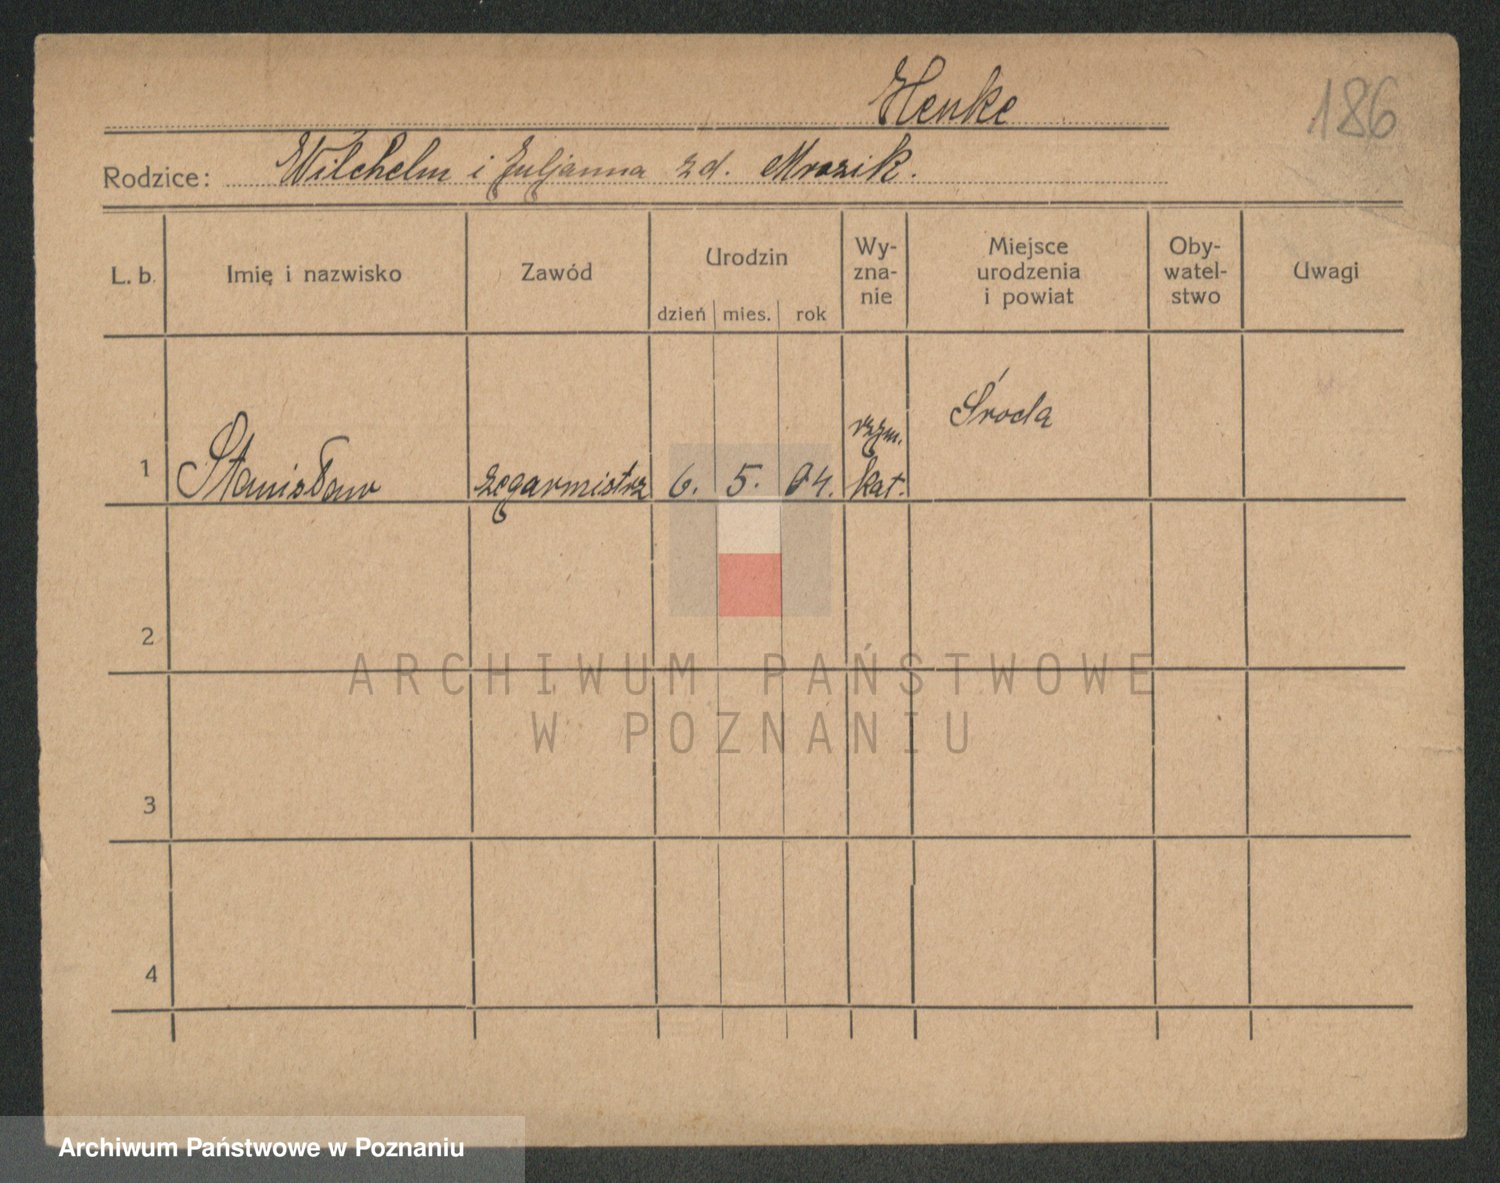 Henke
186
Rodzice: Wilchelm i Juljanna zd. Mrozik.
L. b. Imię i nazwisko Zawód Urodzin dzień mies. rok Wy-zna-nie Miejsce urodzenia i powiat Oby-watel-stwo Uwagi
1 Stanisław zegarmistrz 6. 5. 04. rzym. kat. Środa
2
ARCHIWUM PAŃSTWOWE
W POZNANIU
3
4
Archiwum Państwowe w Poznaniu